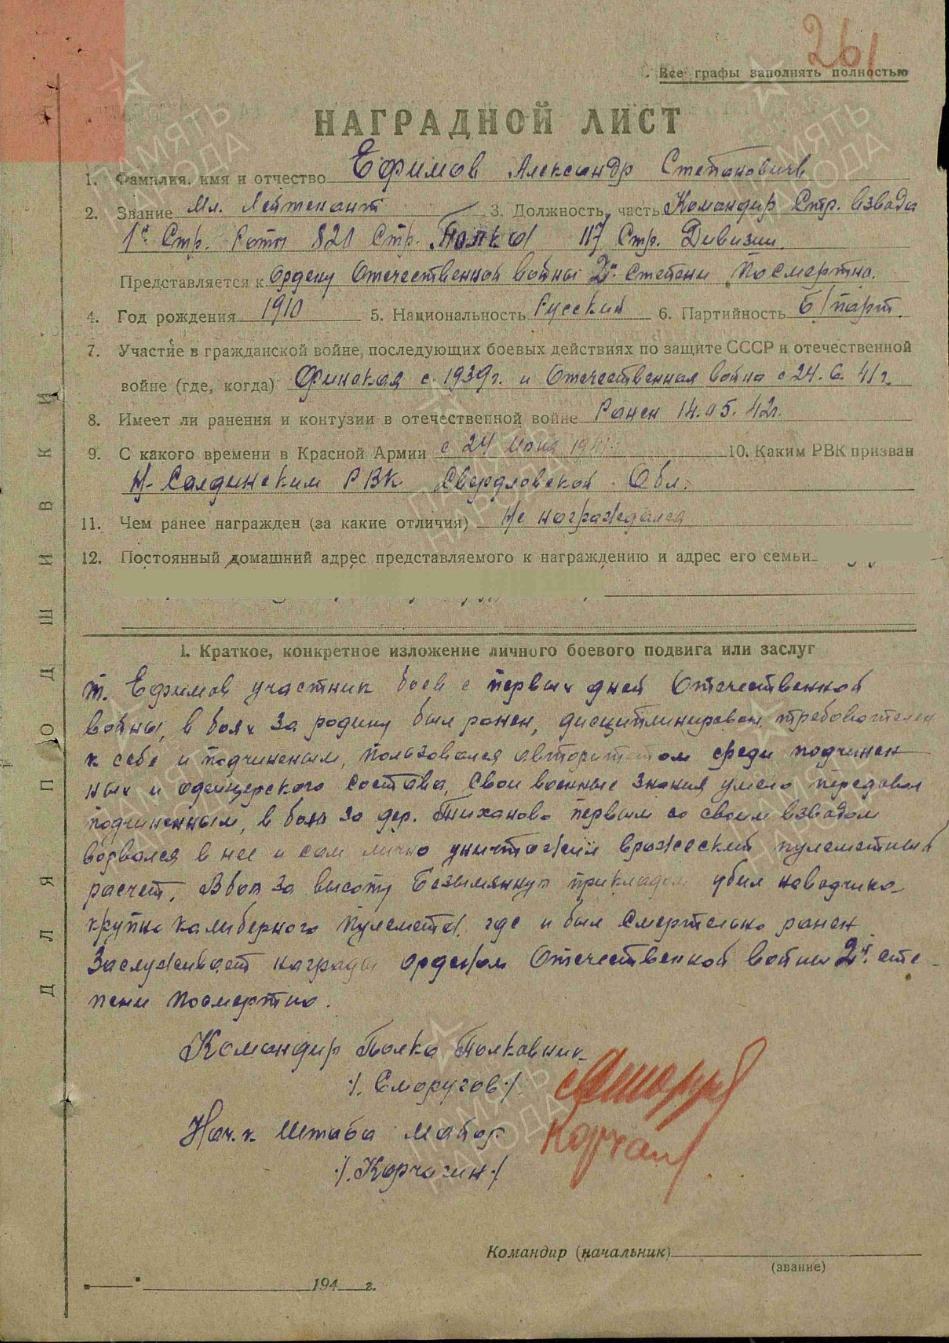 261
Все графы заполнять полностью
НАГРАДНОЙ ЛИСТ
1. Фамилия, имя и отчество Ефимов Александр Степанович
2. Звание Мл. Лейтенант 3. Должность, часть Командир Стр. взвода
1й Стр. Роты 820 Стр. Полка 117 Стр. Дивизии.
Представляется к Ордену Отечественной войны 2й степени Посмертно.
4. Год рождения 1910 5. Национальность Русский 6. Партийность Б/парт.
7. Участие в гражданской войне, последующих боевых действиях по защите СССР и отечественной
войне (где, когда) Финская с 1939г. и Отечественная война с 24.6.41г.
8. Имеет ли ранения и контузии в отечественной войне Ранен 14.05.42г.
9. С какого времени в Красной Армии с 24 Июня 1941г. 10. Каким РВК призван
Н-Салдинским РВК Свердловской Обл.
11. Чем ранее награжден (за какие отличия) Не награждался
12. Постоянный домашний адрес представляемого к награждению и адрес его семьи
I. Краткое, конкретное изложение личного боевого подвига или заслуг
т. Ефимов участник боев с первых дней Отечественной
войны, в боях за родину был ранен, дисциплинирован, требователен
к себе и подчиненым, пользовался авторитетом среди подчинен
ных и офицерского состава, свои военные знания умело передавал
подчиненным, в боях за дер. Тиханово первым со своим взводом
ворвался в нее и сам лично уничтожил вражеский пулеметный
расчет, В боях за высоту Безымянную прикладом убил наводчика
крупно калиберного пулемета, где и был смертельно ранен
Заслуживает награды орденом Отечественной войны 2й сте-
пени посмертно.
Командир Полка Полковник
/. Сморугов./
Нач.к Штаба майор
/. Корчагин./
Командир (начальник)
(звание)
194 г.
ДЛЯ ПОДШИВКИ
ПАМЯТЬ НАРОДА